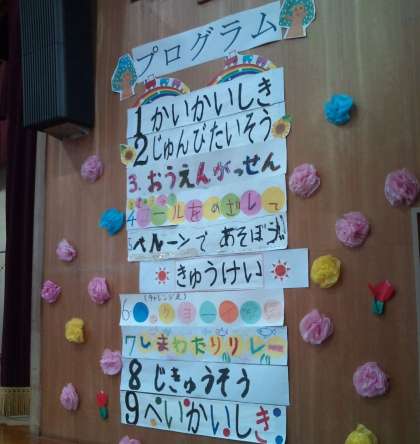 プログラム
1 かいかいしき
2 じゅんびたいそう
3. おうえんがっせん
4 ゴールをめざして
5 バルーンで あそぼう
きゅうけい
6
7 しまわたりリレー
8 じきゅうそう
9 へいかいしき